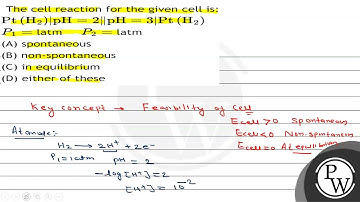 The cell reaction for the given cell is:
Pt (H₂)|pH = 2||pH = 3|Pt (H₂)
P₁ = 1atm P₂ = 1atm
(A) spontaneous
(B) non-spontaneous
(C) in equilibrium
(D) either of these
Key concept → Feasibility of Cell
Ecell > 0 Spontaneous
Ecell < 0 Non-spontaneous
Ecell = 0 At equilibrium
At anode:-
H₂ → 2H⁺ + 2e⁻
P₁ = 1atm pH = 2
-log[H⁺] = 2
[H⁺] = 10⁻²
PW